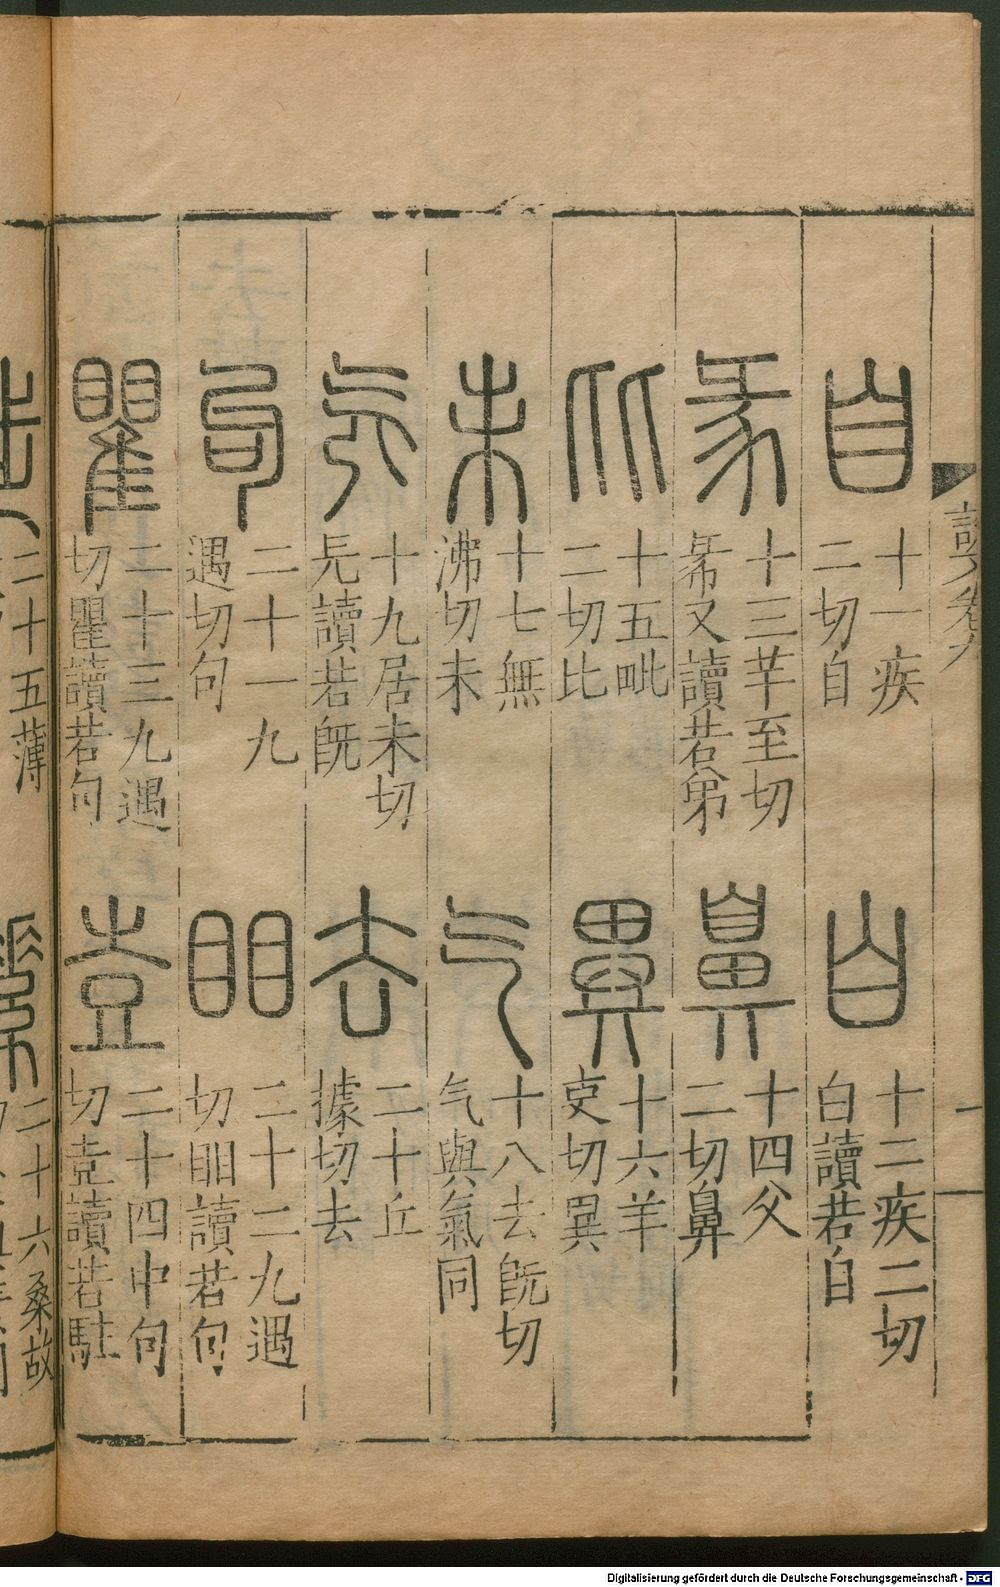 說文卷九
一
自 十一疾
二切自
白 十二疾二切
白讀若自
㣇 十三羊至切
㣇又讀若弟
鼻 十四父
二切鼻
比 十五毗
二切比
異 十六羊
吏切異
未 十七無
沸切未
气 十八去旣切
气與氣同
旡 十九居未切
旡讀若旣
去 二十丘
據切去
句 二十一九
遇切句
䀠 二十二九遇
切䀠讀若句
瞿 二十三九遇
切瞿讀若句
壴 二十四中句
切壴讀若駐
二十五薄
二十六桑故
Digitalisierung gefördert durch die Deutsche Forschungsgemeinschaft - DFG